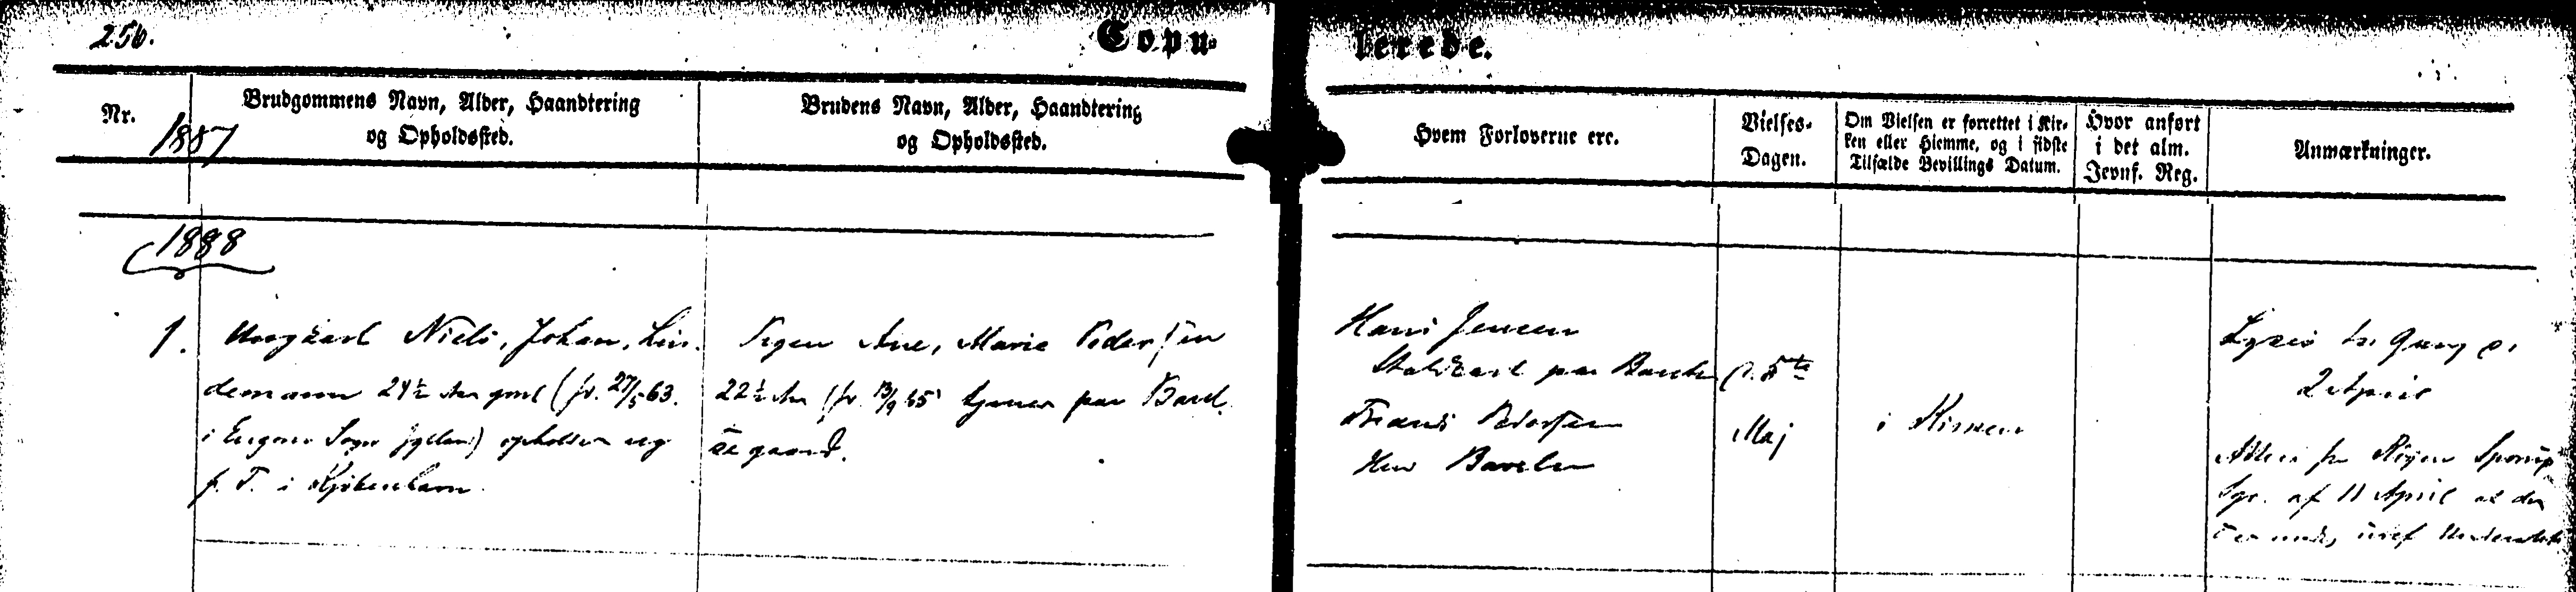 256.
Copu-
lerede.
Nr.
1887
Brudgommens Navn, Alder, Haandtering
og Opholdssted.
Brudens Navn, Alder, Haandtering
og Opholdssted.
Hvem Forloverne ere.
Vielses-
Dagen.
Om Vielsen er forrettet i Kir-
ken eller Hjemme, og i sidste
Tilfælde Bevillings Datum.
Hvor anført
i det alm.
Jevnf. Reg.
Anmærkninger.
1888
1.
Ungkarl Niels, Johan, Lin-
demann 24½ Aar gml (f. 27/5 63.
i Sogn Jylland) opholder sig
p. T. i Kjøbenhavn.
Pigen Ane, Marie Pedersen
22½ Aar (f. 13/9 65) tjener paa
gaard.
Hans Jensen
Staldkarl paa
Frands Pedersen
d. 5te
Maj
i Kirken
Lyses 1ste Gang d.
2 April
Attest fra
Sgn. af 11 April at der